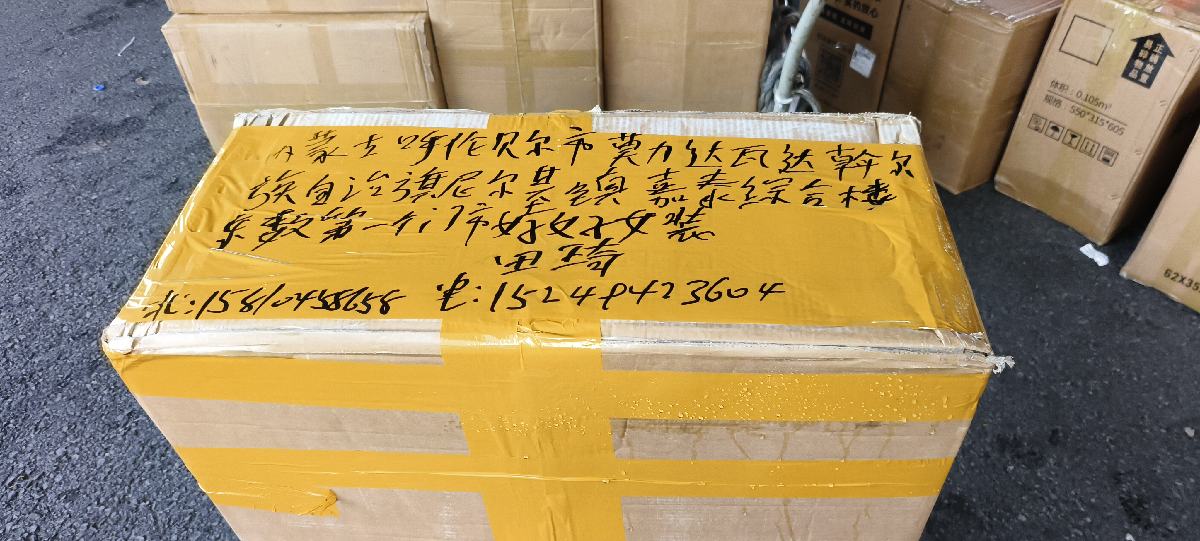 内蒙古呼伦贝尔市莫力达瓦达斡尔
族自治旗尼尔基镇嘉泰綜合樓
东数第一个门市好好女装
田琦
北:15810458658 电:15248423604
正面放置
易碎物品
体积:0.105m³
规格:550*315*605
62X35